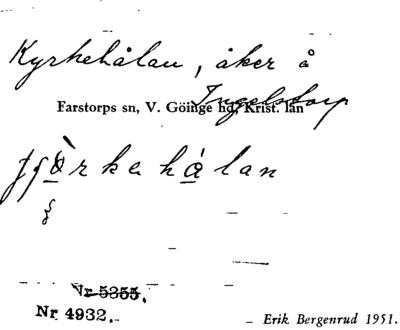 Kyrkehålan, åker å
Ingelstorp
Farstorps sn, V. Göinge hd, Krist. län
hålan
Nr 5355.
Nr 4932.
Erik Bergenrud 1951.